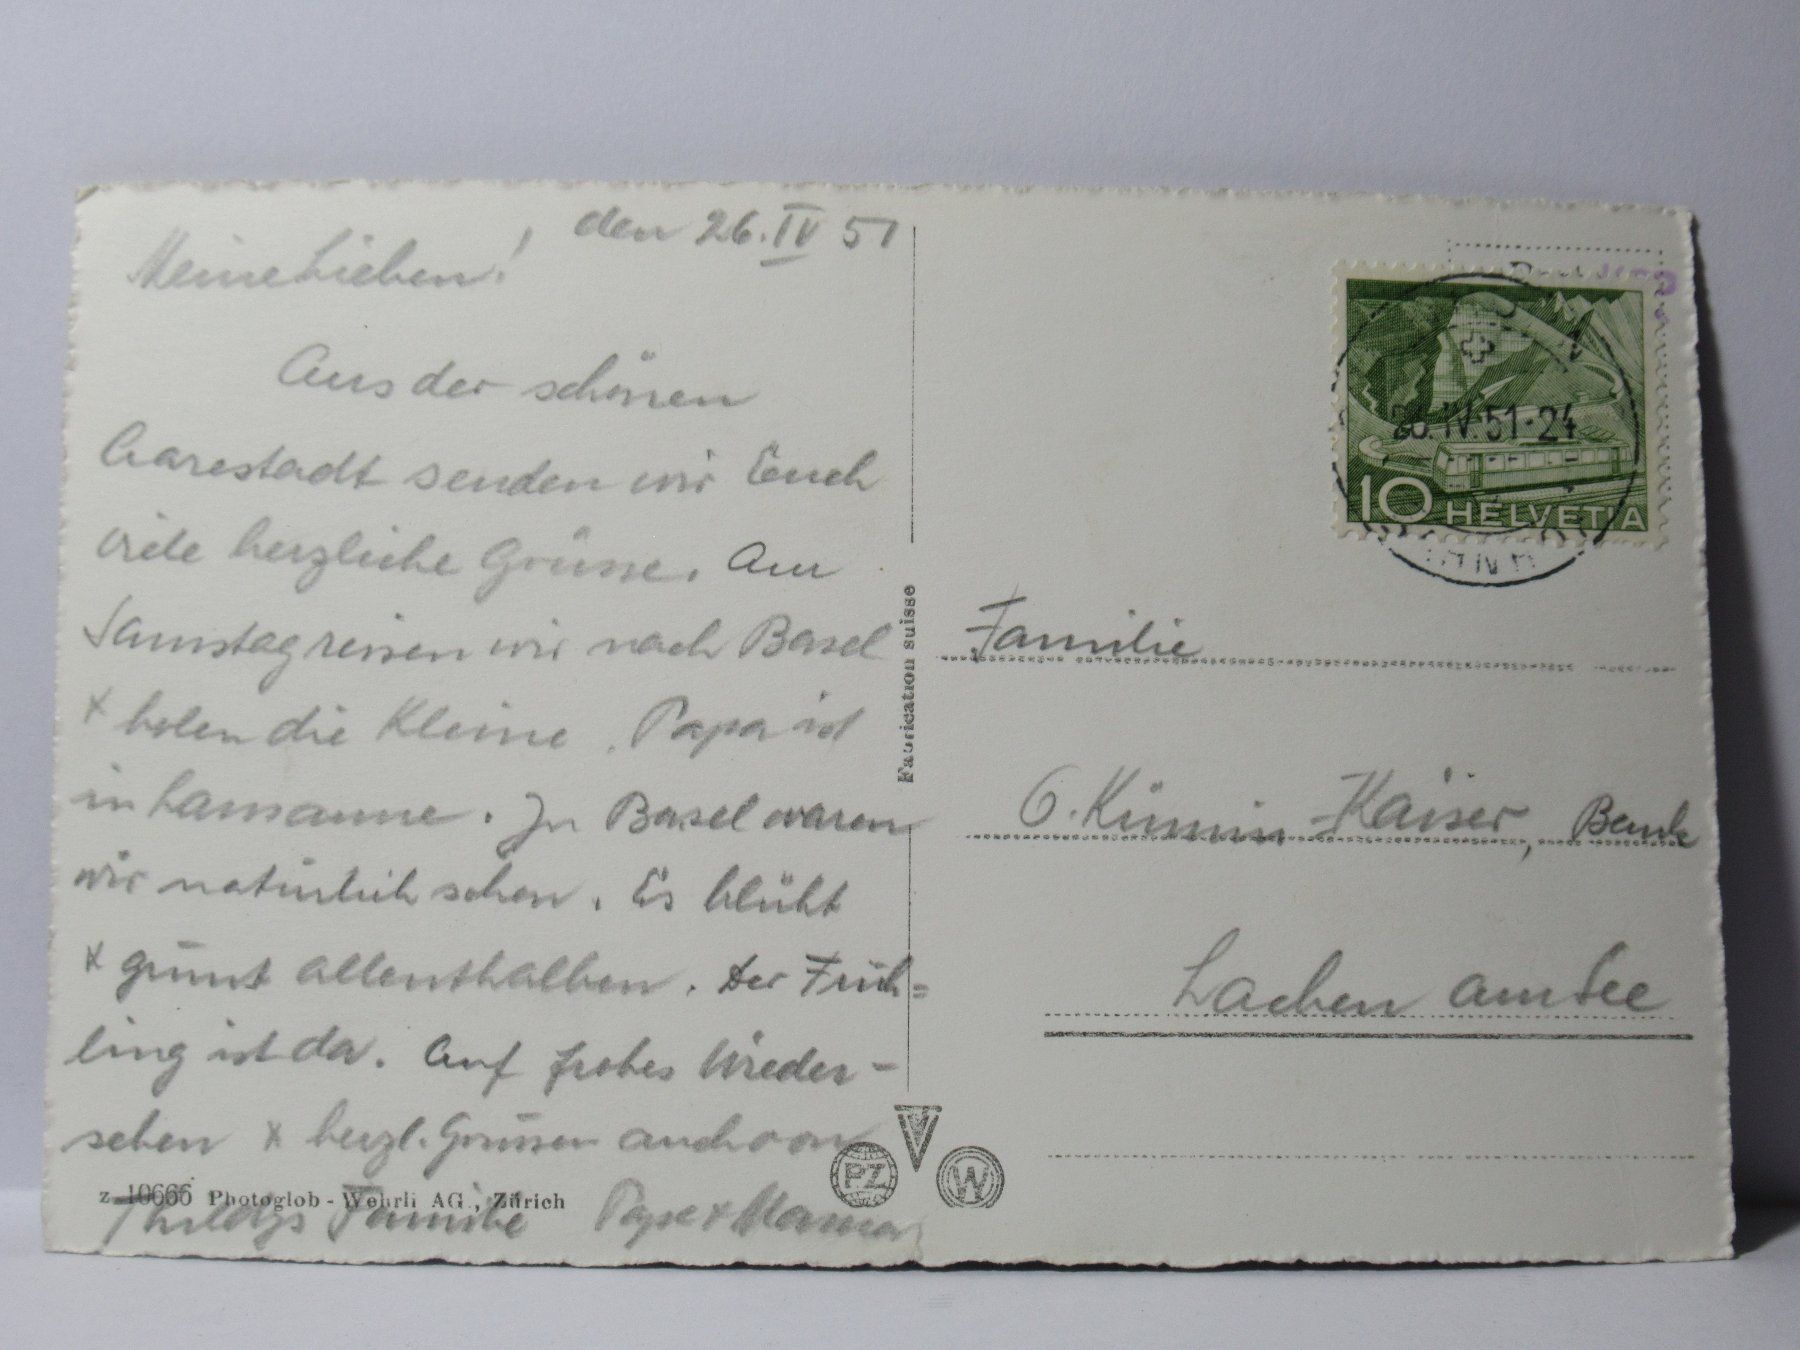 den 26. IV 51
Meine Lieben!
Aus der schönen
Aarestadt senden wir Euch
viele herzliche Grüsse. Am
Samstag reisen wir nach Basel
+ holen die Kleine. Papa ist
in Lausanne. In Basel waren
wir natürlich schon. Es blüht
+ grünt allenthalben. Der Früh=
ling ist da. Auf frohes Wieder-
sehen + herzl. Grüssen auch von
Familie Papa + Mama
z 10666 Photoglob - Wehrli AG., Zürich
Fabrication suisse
PZ
V
W
26. IV 51-24
10 HELVETIA
Familie
Kaiser, Bank
Lachen am See